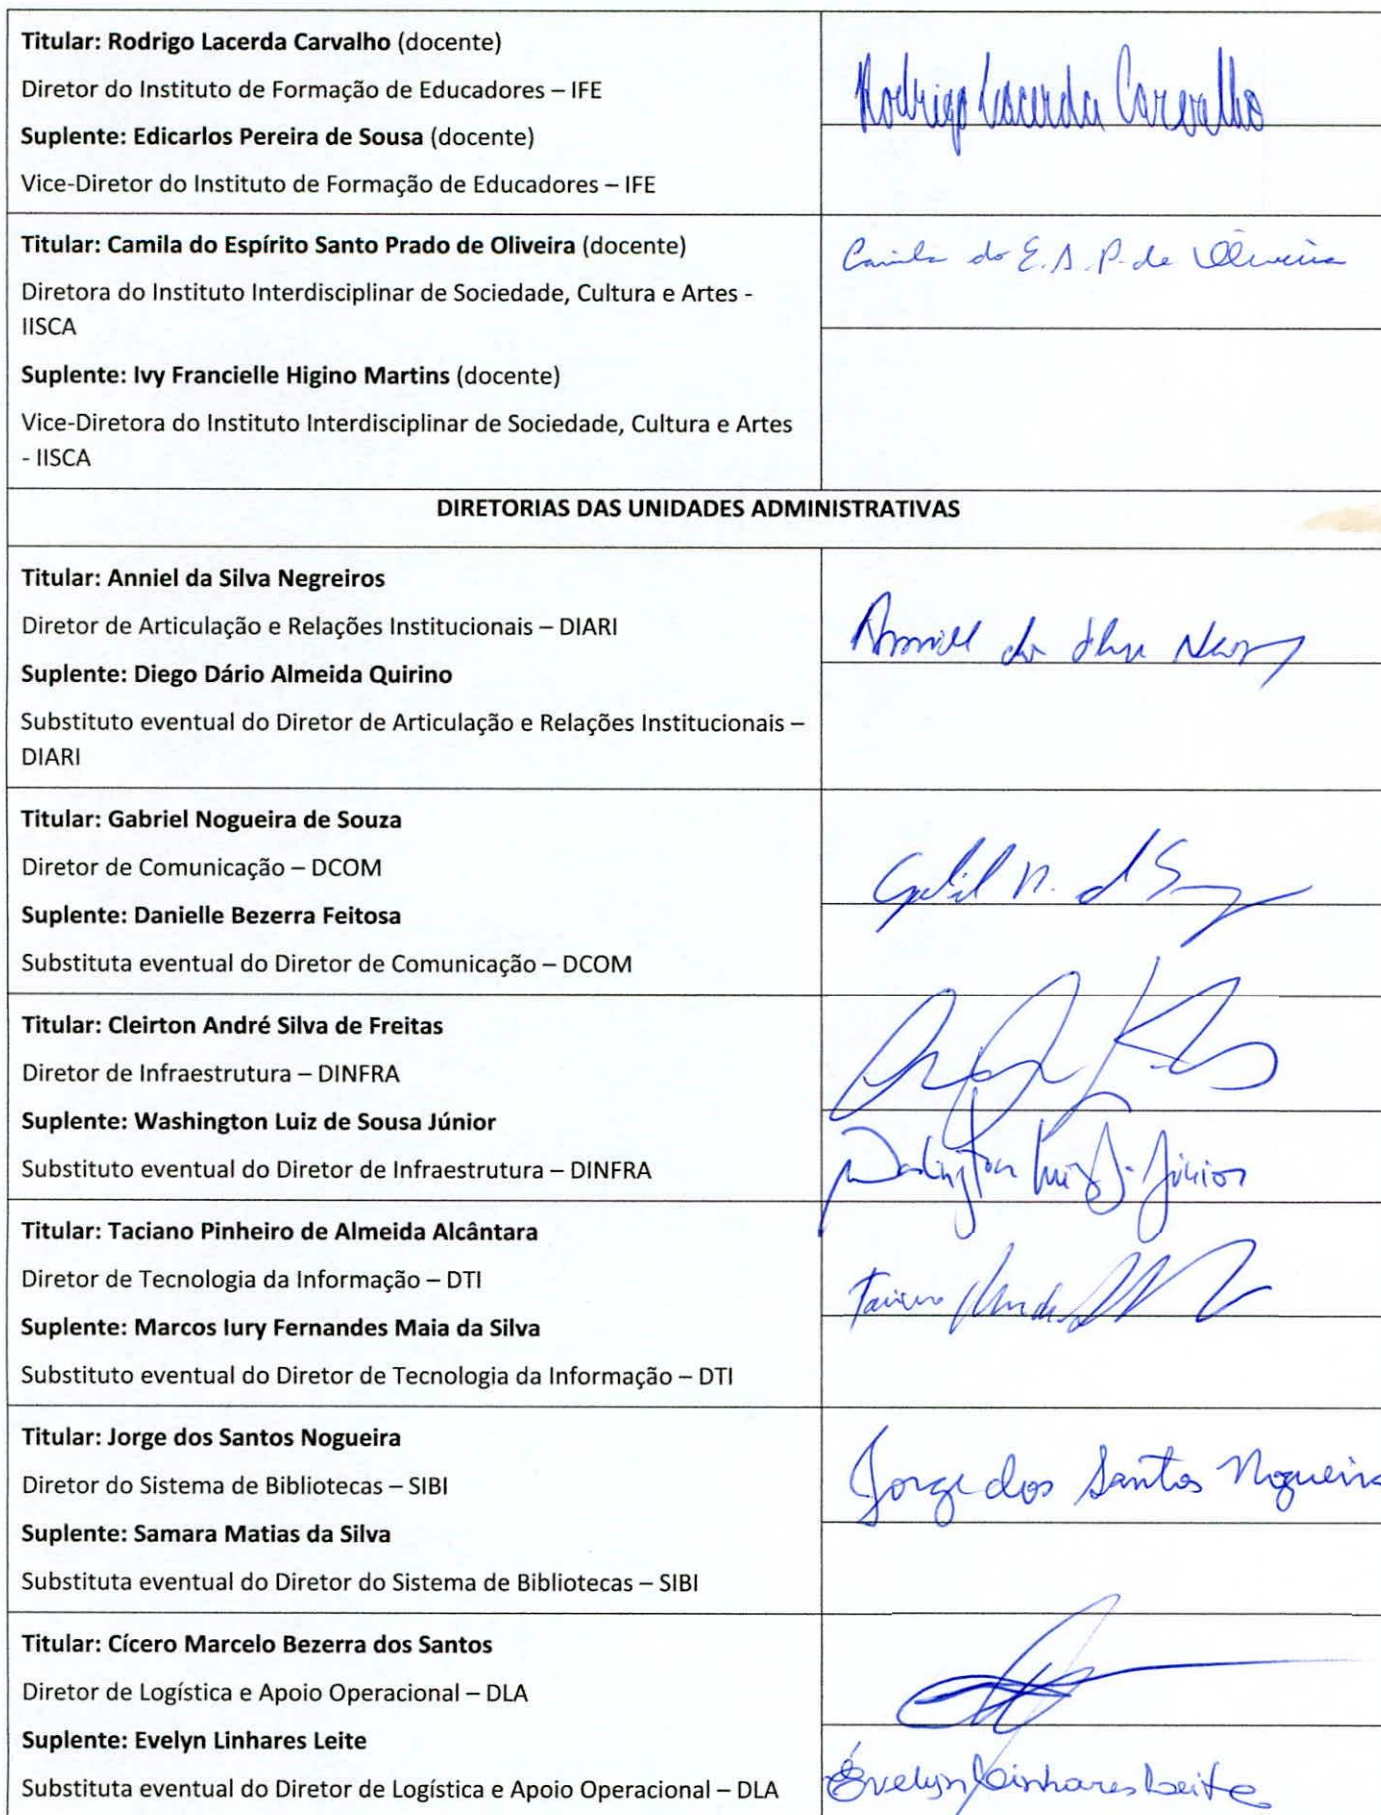 Titular: Rodrigo Lacerda Carvalho (docente)
Diretor do Instituto de Formação de Educadores – IFE
Suplente: Edicarlos Pereira de Sousa (docente)
Vice-Diretor do Instituto de Formação de Educadores – IFE
Rodrigo Lacerda Carvalho
Titular: Camila do Espírito Santo Prado de Oliveira (docente)
Diretora do Instituto Interdisciplinar de Sociedade, Cultura e Artes -
IISCA
Suplente: Ivy Francielle Higino Martins (docente)
Vice-Diretora do Instituto Interdisciplinar de Sociedade, Cultura e Artes
- IISCA
Camila do E. S. P. de Oliveira
DIRETORIAS DAS UNIDADES ADMINISTRATIVAS
Titular: Anniel da Silva Negreiros
Diretor de Articulação e Relações Institucionais – DIARI
Suplente: Diego Dário Almeida Quirino
Substituto eventual do Diretor de Articulação e Relações Institucionais –
DIARI
Titular: Gabriel Nogueira de Souza
Diretor de Comunicação – DCOM
Suplente: Danielle Bezerra Feitosa
Substituta eventual do Diretor de Comunicação – DCOM
Titular: Cleirton André Silva de Freitas
Diretor de Infraestrutura – DINFRA
Suplente: Washington Luiz de Sousa Júnior
Substituto eventual do Diretor de Infraestrutura – DINFRA
Washington Luiz S. Júnior
Titular: Taciano Pinheiro de Almeida Alcântara
Diretor de Tecnologia da Informação – DTI
Suplente: Marcos Iury Fernandes Maia da Silva
Substituto eventual do Diretor de Tecnologia da Informação – DTI
Titular: Jorge dos Santos Nogueira
Diretor do Sistema de Bibliotecas – SIBI
Suplente: Samara Matias da Silva
Substituta eventual do Diretor do Sistema de Bibliotecas – SIBI
Jorge dos Santos Nogueira
Titular: Cícero Marcelo Bezerra dos Santos
Diretor de Logística e Apoio Operacional – DLA
Suplente: Evelyn Linhares Leite
Substituta eventual do Diretor de Logística e Apoio Operacional – DLA
Évelyn Linhares Leite